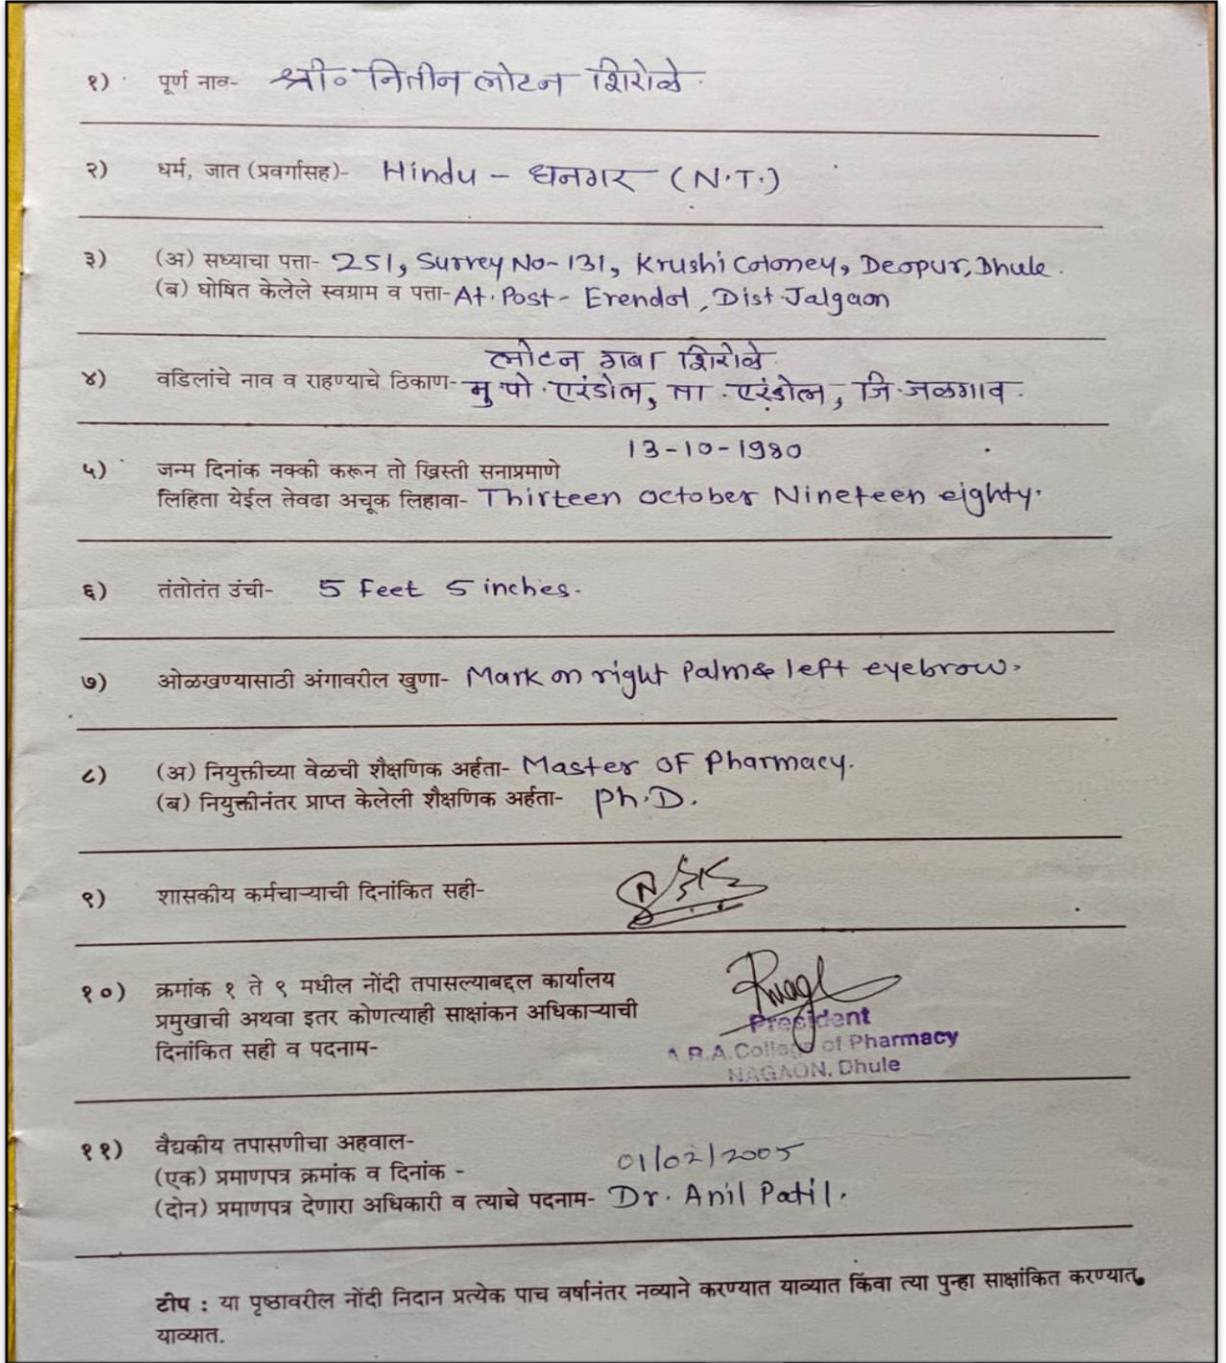 १) पूर्ण नाव- श्री० नितीन लोटन शिरोळे.
२) धर्म, जात (प्रवर्गासह)- Hindu - धनगर (N.T.)
३) (अ) सध्याचा पत्ता- 251, Survey No-131, Krushi Coloney, Deopur, Dhule.
(ब) घोषित केलेले स्वग्राम व पत्ता- At. Post- Erendol, Dist Jalgaon
लोटन गबा शिरोळे
४) वडिलांचे नाव व राहण्याचे ठिकाण- मु.पो. एरंडोल, ता. एरंडोल, जि. जळगाव.
13-10-1980
५) जन्म दिनांक नक्की करून तो ख्रिस्ती सनाप्रमाणे
लिहिता येईल तेवढा अचूक लिहावा- Thirteen october Nineteen eighty.
६) तंतोतंत उंची- 5 Feet 5 inches.
७) ओळखण्यासाठी अंगावरील खुणा- Mark on right Palm & left eyebrow.
८) (अ) नियुक्तीच्या वेळची शैक्षणिक अर्हता- Master OF Pharmacy.
(ब) नियुक्तीनंतर प्राप्त केलेली शैक्षणिक अर्हता- Ph.D.
९) शासकीय कर्मचाऱ्याची दिनांकित सही-
१०) क्रमांक १ ते ९ मधील नोंदी तपासल्याबद्दल कार्यालय
प्रमुखाची अथवा इतर कोणत्याही साक्षांकन अधिकाऱ्याची
दिनांकित सही व पदनाम-
President
A.R.A. College of Pharmacy
NAGAON, Dhule
११) वैद्यकीय तपासणीचा अहवाल-
(एक) प्रमाणपत्र क्रमांक व दिनांक - 01/02/2005
(दोन) प्रमाणपत्र देणारा अधिकारी व त्याचे पदनाम- Dr. Anil Patil.
टीप : या पृष्ठावरील नोंदी निदान प्रत्येक पाच वर्षानंतर नव्याने करण्यात याव्यात किंवा त्या पुन्हा साक्षांकित करण्यात
याव्यात.